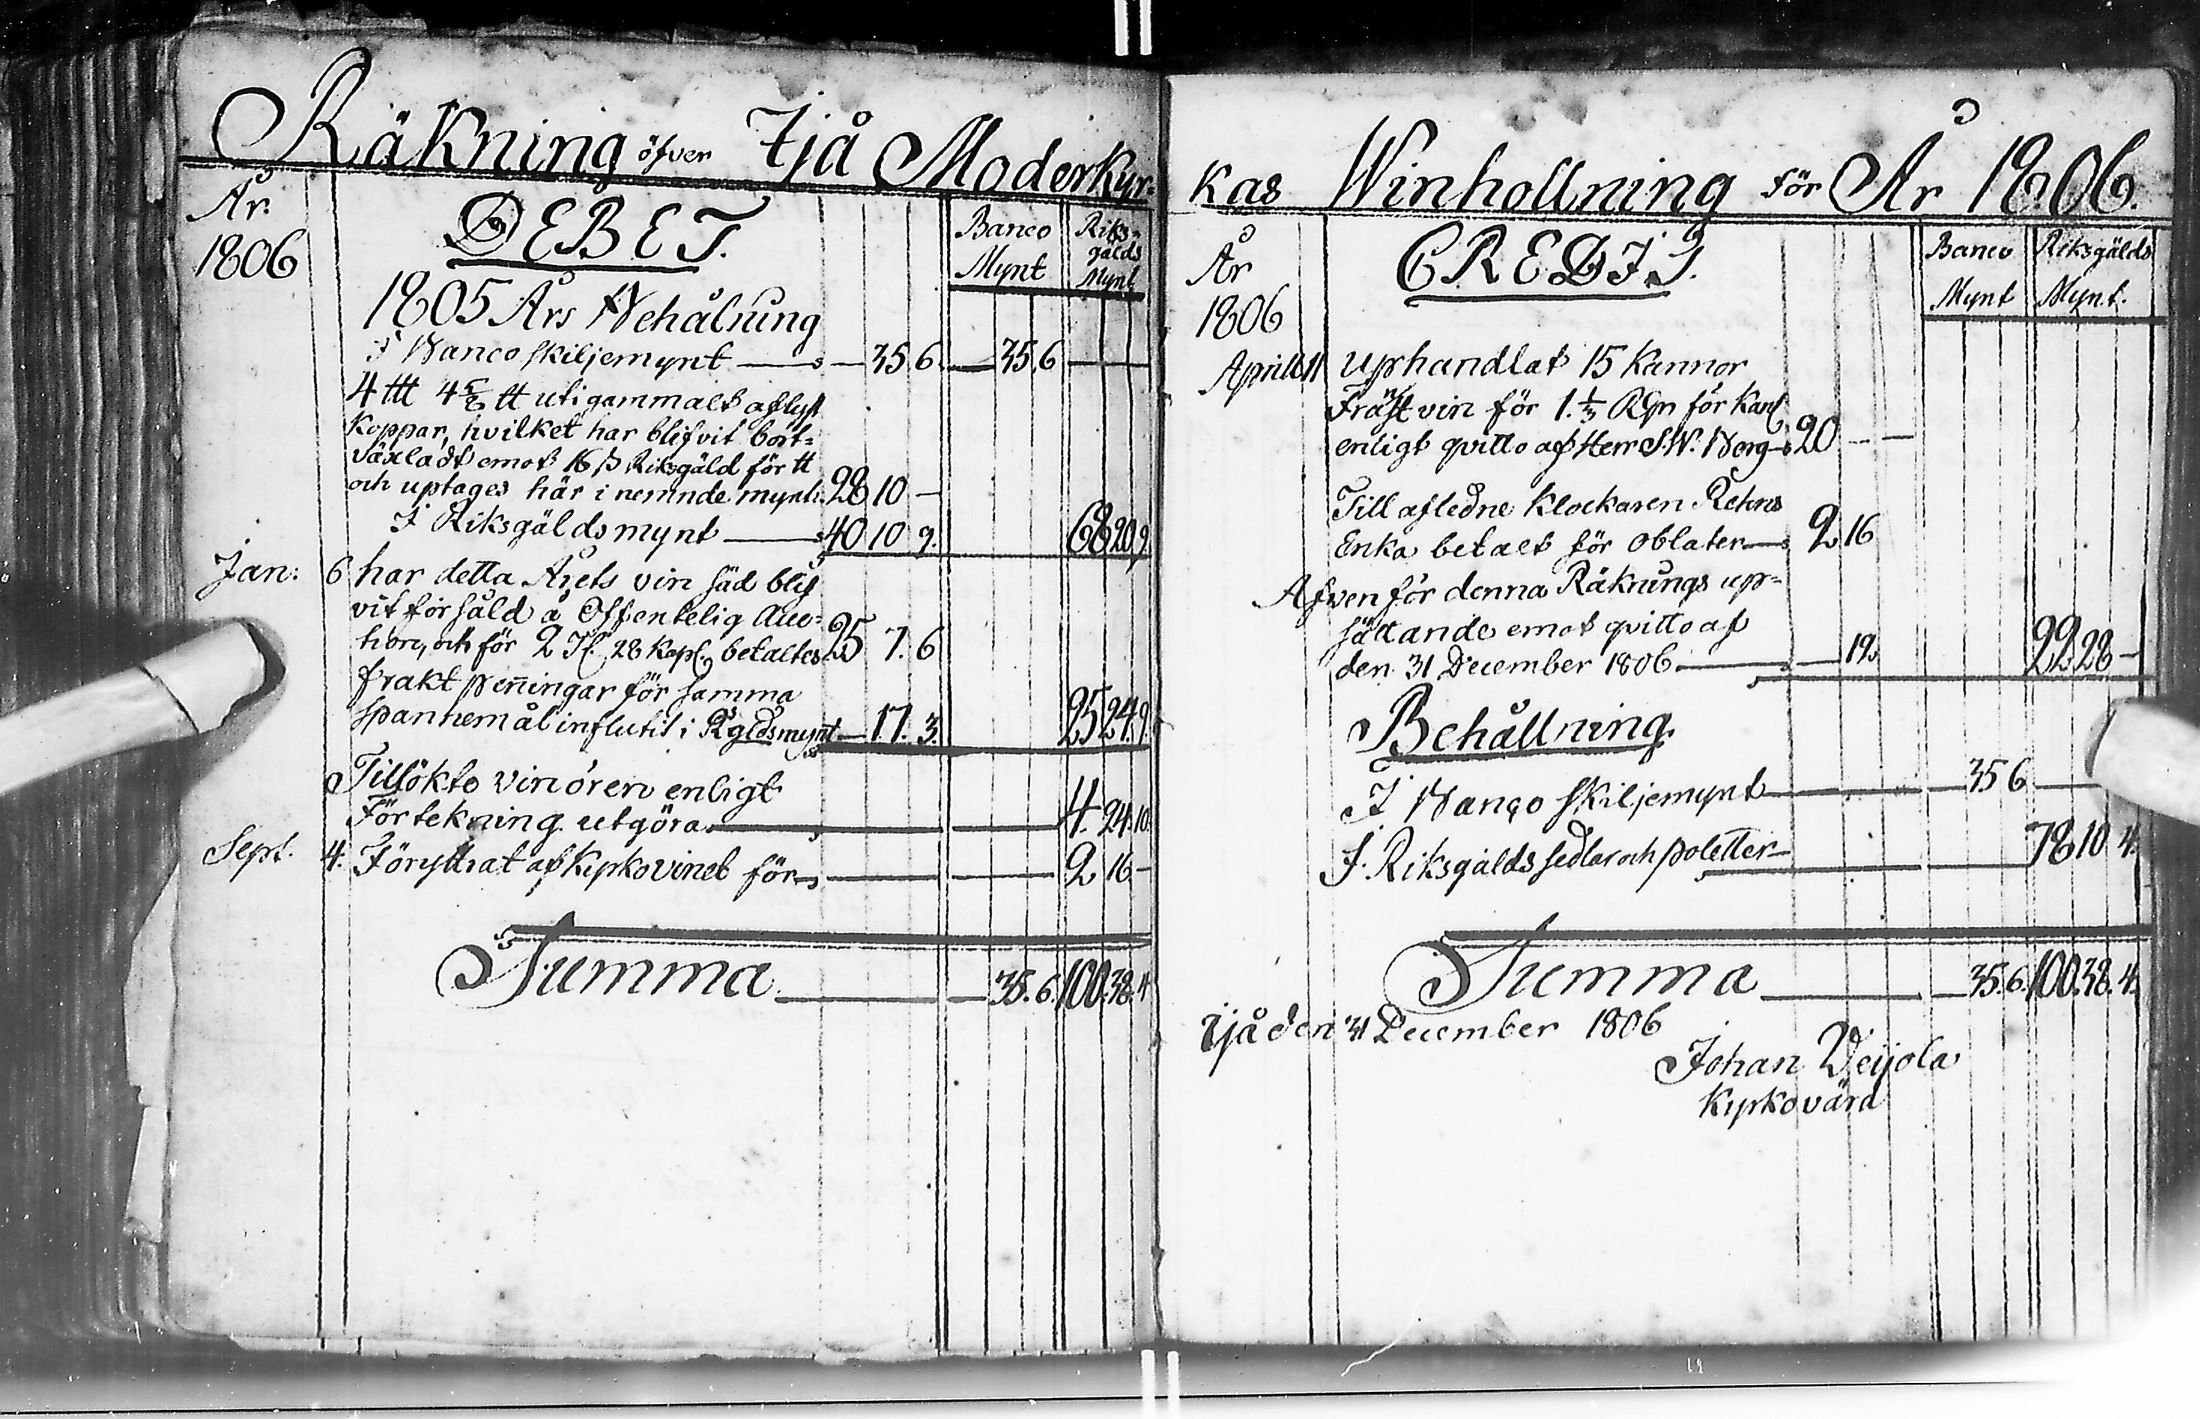 Räkning öfver Ijå Moderkyr=
År
1806
DEBET.
Banco Mynt
Riks=gälds Mynt
1805 Års Behålning
I Banco skiljemynt — 35 6 — 35 6
4 ttt 4 5/6 tt uti gammalt aflyft
Koppar, hvilket har blifvit bort=
växladt emot 16 ß Riksgäld för tt
och uptages här i nemnde mynt 28 10 —
I Riksgälds mynt — 40 10 9. 68 20 9
Jan: 6 har detta Årets vin säd blif
vit försåld å Offentelig Auc=
tion, och för 2 T. 28 Kap. betaltes 25 7. 6
frakt peningar för samma
spannemål influtit i Rgldsmynt — 17. 3. 25 24. 9.
Tillökte vinören enligt
Förtekning utgöra — 4. 24. 10
Sept. 4. Föryttrat af Kyrkovinet för — 2 16 —
Summa — 35. 6. 100. 38. 4
kas Winhollning för År 1806.
År
1806
CREDIT.
Banco Mynt
Riksgälds Mynt.
Aprill 11 Uphandlat 15 Kannor
Fräst vin för 1. 1/3 RDr för Kan
enligt qvitto af Herr S.W. Berg — 20 — —
Till afledne Klockaren Rehns
Enka betalt för Oblater — 2 16
Afven för denna Räknings up=
sättande emot qvitto af
den 31 December 1806 — 12 22 28 —
Behållning.
I Banco Skiljemynt — 35 6 —
I Riksgälds sedlar och poletter — 78 10 4.
Summa — 35. 6. 100. 38. 4.
Ijå den 31 December 1806
Johan Veijola
Kyrkovärd